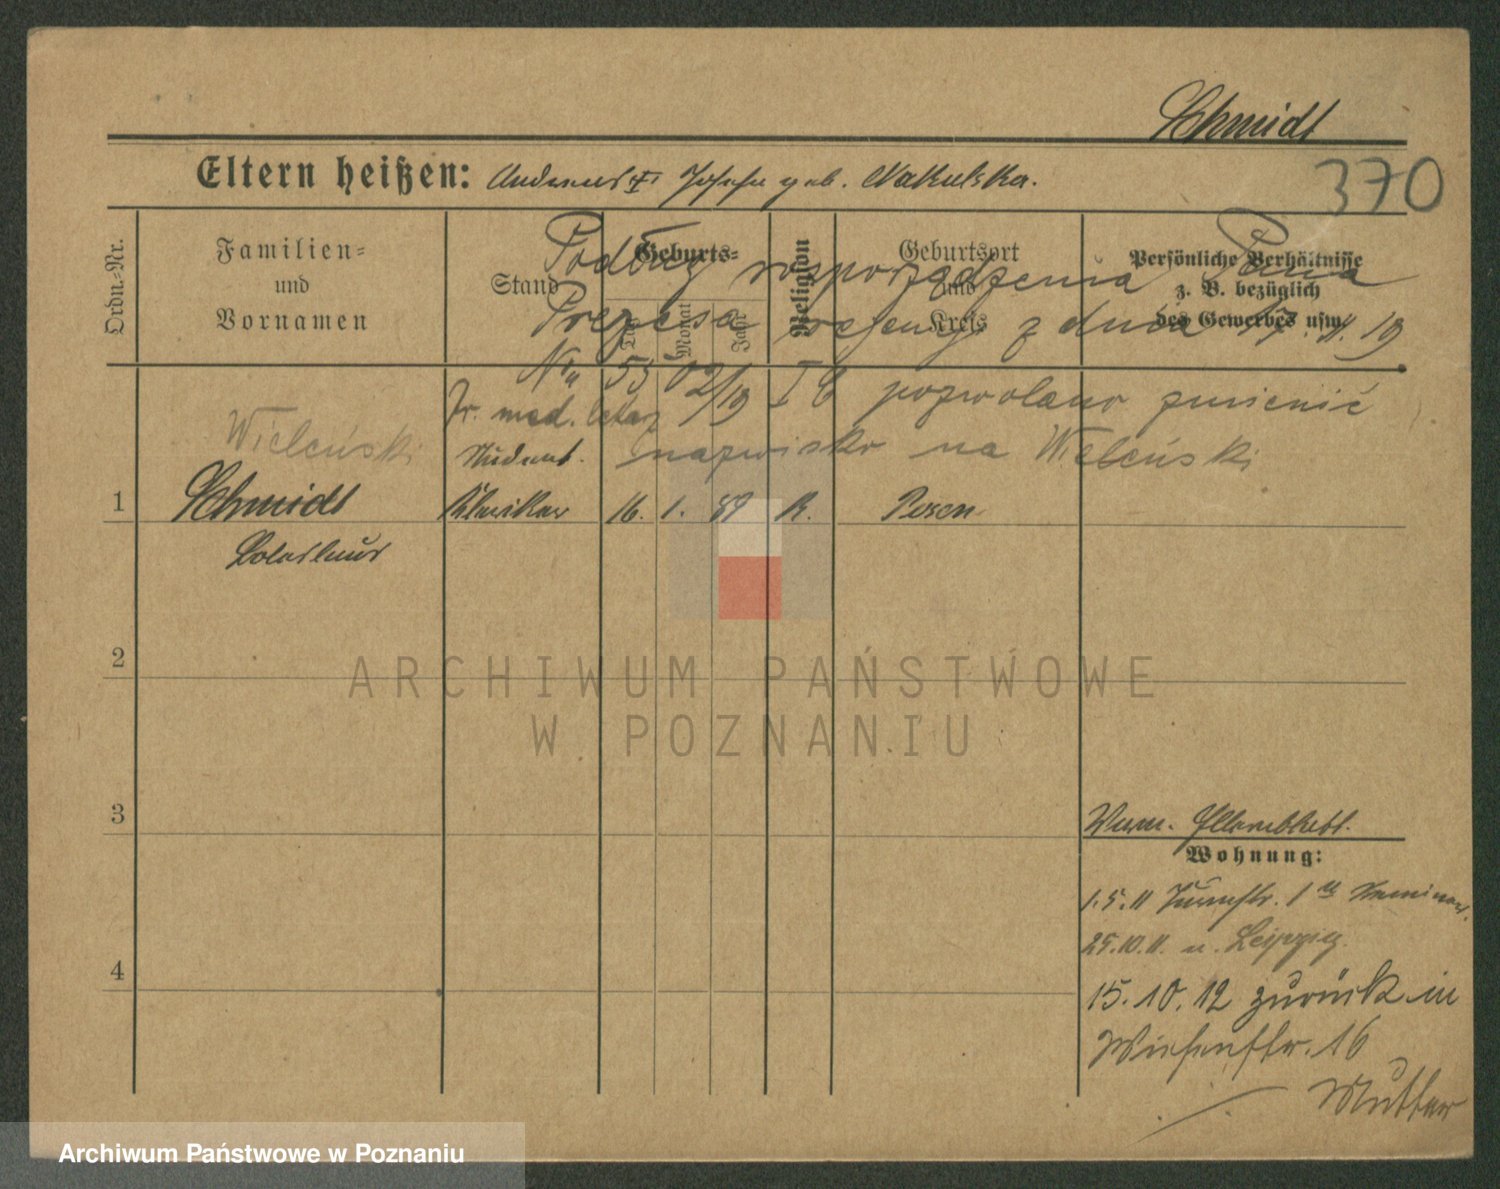 Schmidt
370
Eltern heißen: Andreas † Josefa geb. Nakulska.
Ordn.-Nr.
Familien-
und
Vornamen
Stand
Geburts-
Tag
Monat
Jahr
Religion
Geburtsort
und
Kreis
Persönliche Verhältnisse
z. B. bezüglich
des Gewerbes usw.
Podług rozporządzenia Pana
Prezesa rejencji z dnia 17. 11. 19
I C pozwolano zmienić
nazwisko na Wieleński
Wieleński
Dr. med. lekarz
Student.
1 Schmidt Kleriker 16. 1. 89 K. Posen
Boleslaus
2
3
4
Wohnung:
1.5.11 Turmstr. 1
25.10.11. n. Leipzig.
15.10.12 zurück in
Wiesenstr. 16
Mutter
ARCHIWUM PAŃSTWOWE
W POZNANIU
Archiwum Państwowe w Poznaniu